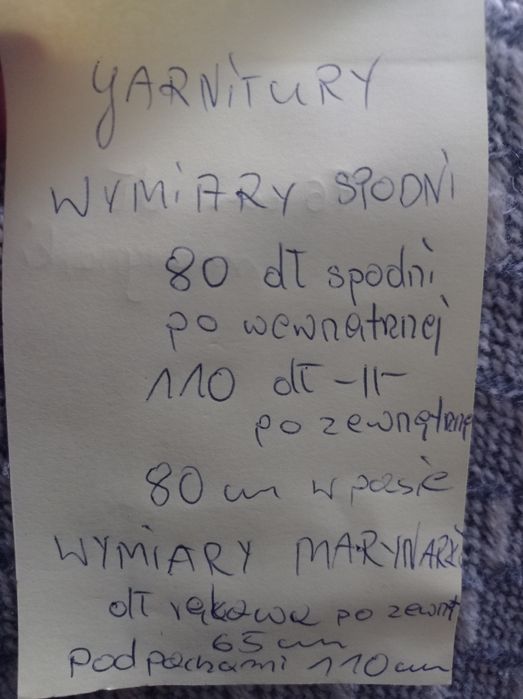 GARNITURY
WYMIARY SPODNI
80 dł spodni
po wewnątrznej
110 dł -||-
po zewnętrzne
80 cm w pasie
WYMIARY MARYNARKI
dł rękawa po zewnęt
65 cm
pod pachami 110 cm